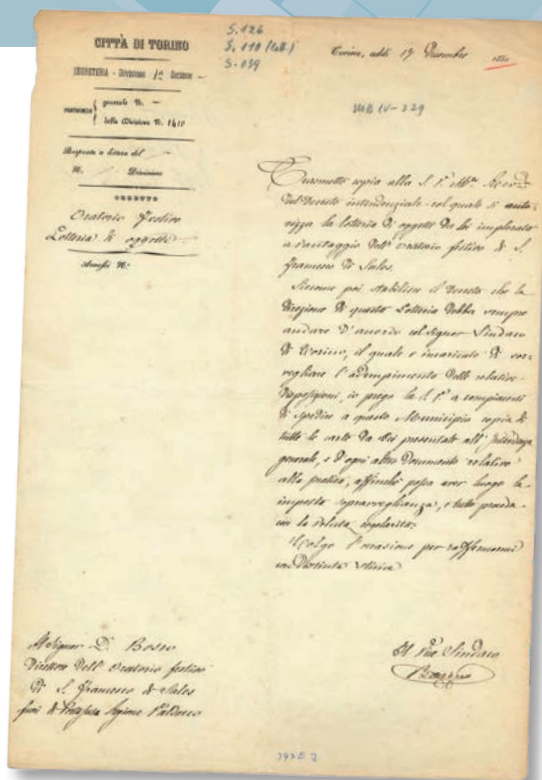 CITTÀ DI TORINO
SEGRETERIA - Divisione 1ª Sezione
PROTOCOLLO
generale N. —
della Divisione N. 1410
Risposta a lettera del
N. Divisione
OGGETTO
Oratorio Festivo
Lotteria di oggetti
Annessi N.
S. 126
S. 110 (lett.)
S. 039
Torino, addì 17 Dicembre
MB IV-329
Trasmetto copia alla S. V. M.to
del Decreto intendenziale col quale si auto-
rizza la lotteria di oggetti da lei implorata
a vantaggio dell' oratorio festivo di S.
Francesco di Sales.
Siccome poi stabilisce il Decreto che la
Direzione di questa Lotteria debba sempre
andare d'accordo col Signor Sindaco
di Torino, il quale è incaricato di sor-
vegliare l'adempimento delle relative
disposizioni, io prego la S. V. a compiacersi
di spedire a questo Municipio copia di
tutte le carte da Lei presentate all' Intendenza
generale, e d'ogni altro Documento relativo
alla pratica, affinchè possa aver luogo la
imposta sopravveglianza, e tutto proceda
con la voluta regolarità.
Colgo l'occasione per raffermarmi
con distinta stima
Il Vice Sindaco
Al Signor D. Bosco
Direttore dell' Oratorio festivo
di S. Francesco di Sales
fuori di Porta Susa Regione Valdocco